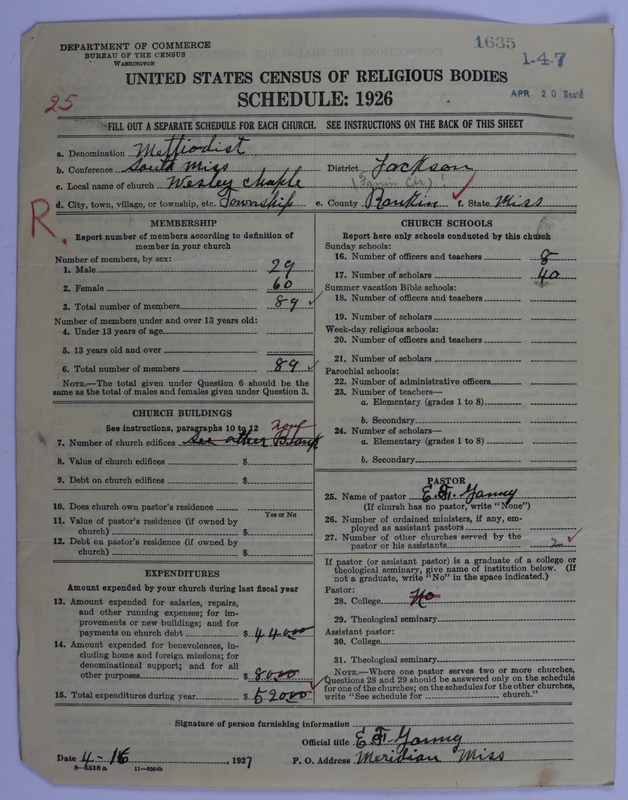 DEPARTMENT OF COMMERCE
BUREAU OF THE CENSUS
WASHINGTON
1635
1-4-7
UNITED STATES CENSUS OF RELIGIOUS BODIES
SCHEDULE: 1926
APR 20 Rec'd
25
FILL OUT A SEPARATE SCHEDULE FOR EACH CHURCH. SEE INSTRUCTIONS ON THE BACK OF THIS SHEET
a. Denomination Methodist
b. Conference South Miss District Jackson
c. Local name of church Wesley Chaple
d. City, town, village, or township, etc. Township e. County Rankin f. State Miss
R.
MEMBERSHIP
Report number of members according to definition of
member in your church
Number of members, by sex:
1. Male 29
2. Female 60
3. Total number of members 89
Number of members under and over 13 years old:
4. Under 13 years of age
5. 13 years old and over
6. Total number of members 89
NOTE.—The total given under Question 6 should be the
same as the total of males and females given under Question 3.
CHURCH BUILDINGS
See instructions, paragraphs 10 to 12 none
7. Number of church edifices See other Blank
8. Value of church edifices $
9. Debt on church edifices $
10. Does church own pastor's residence
Yes or No
11. Value of pastor's residence (if owned by
church) $
12. Debt on pastor's residence (if owned by
church) $
EXPENDITURES
Amount expended by your church during last fiscal year
13. Amount expended for salaries, repairs,
and other running expenses; for im-
provements or new buildings; and for
payments on church debt $ 440.00
14. Amount expended for benevolences, in-
cluding home and foreign missions; for
denominational support; and for all
other purposes $ 80.00
15. Total expenditures during year $ 520.00
CHURCH SCHOOLS
Report here only schools conducted by this church
Sunday schools:
16. Number of officers and teachers 8
17. Number of scholars 40
Summer vacation Bible schools:
18. Number of officers and teachers
19. Number of scholars
Week-day religious schools:
20. Number of officers and teachers
21. Number of scholars
Parochial schools:
22. Number of administrative officers
23. Number of teachers—
a. Elementary (grades 1 to 8)
b. Secondary
24. Number of scholars—
a. Elementary (grades 1 to 8)
b. Secondary
PASTOR
25. Name of pastor E. F.
(If church has no pastor, write "None")
26. Number of ordained ministers, if any, em-
ployed as assistant pastors
27. Number of other churches served by the
pastor or his assistants
If pastor (or assistant pastor) is a graduate of a college or
theological seminary, give name of institution below. (If
not a graduate, write "No" in the space indicated.)
Pastor:
28. College No
29. Theological seminary
Assistant pastor:
30. College
31. Theological seminary
NOTE.—Where one pastor serves two or more churches,
Questions 28 and 29 should be answered only on the schedule
for one of the churches; on the schedules for the other churches,
write "See schedule for ________ church."
Signature of person furnishing information
Official title E. F.
Date 4-16, 1927 P. O. Address Meridian Miss
8—5518a 11—9064b